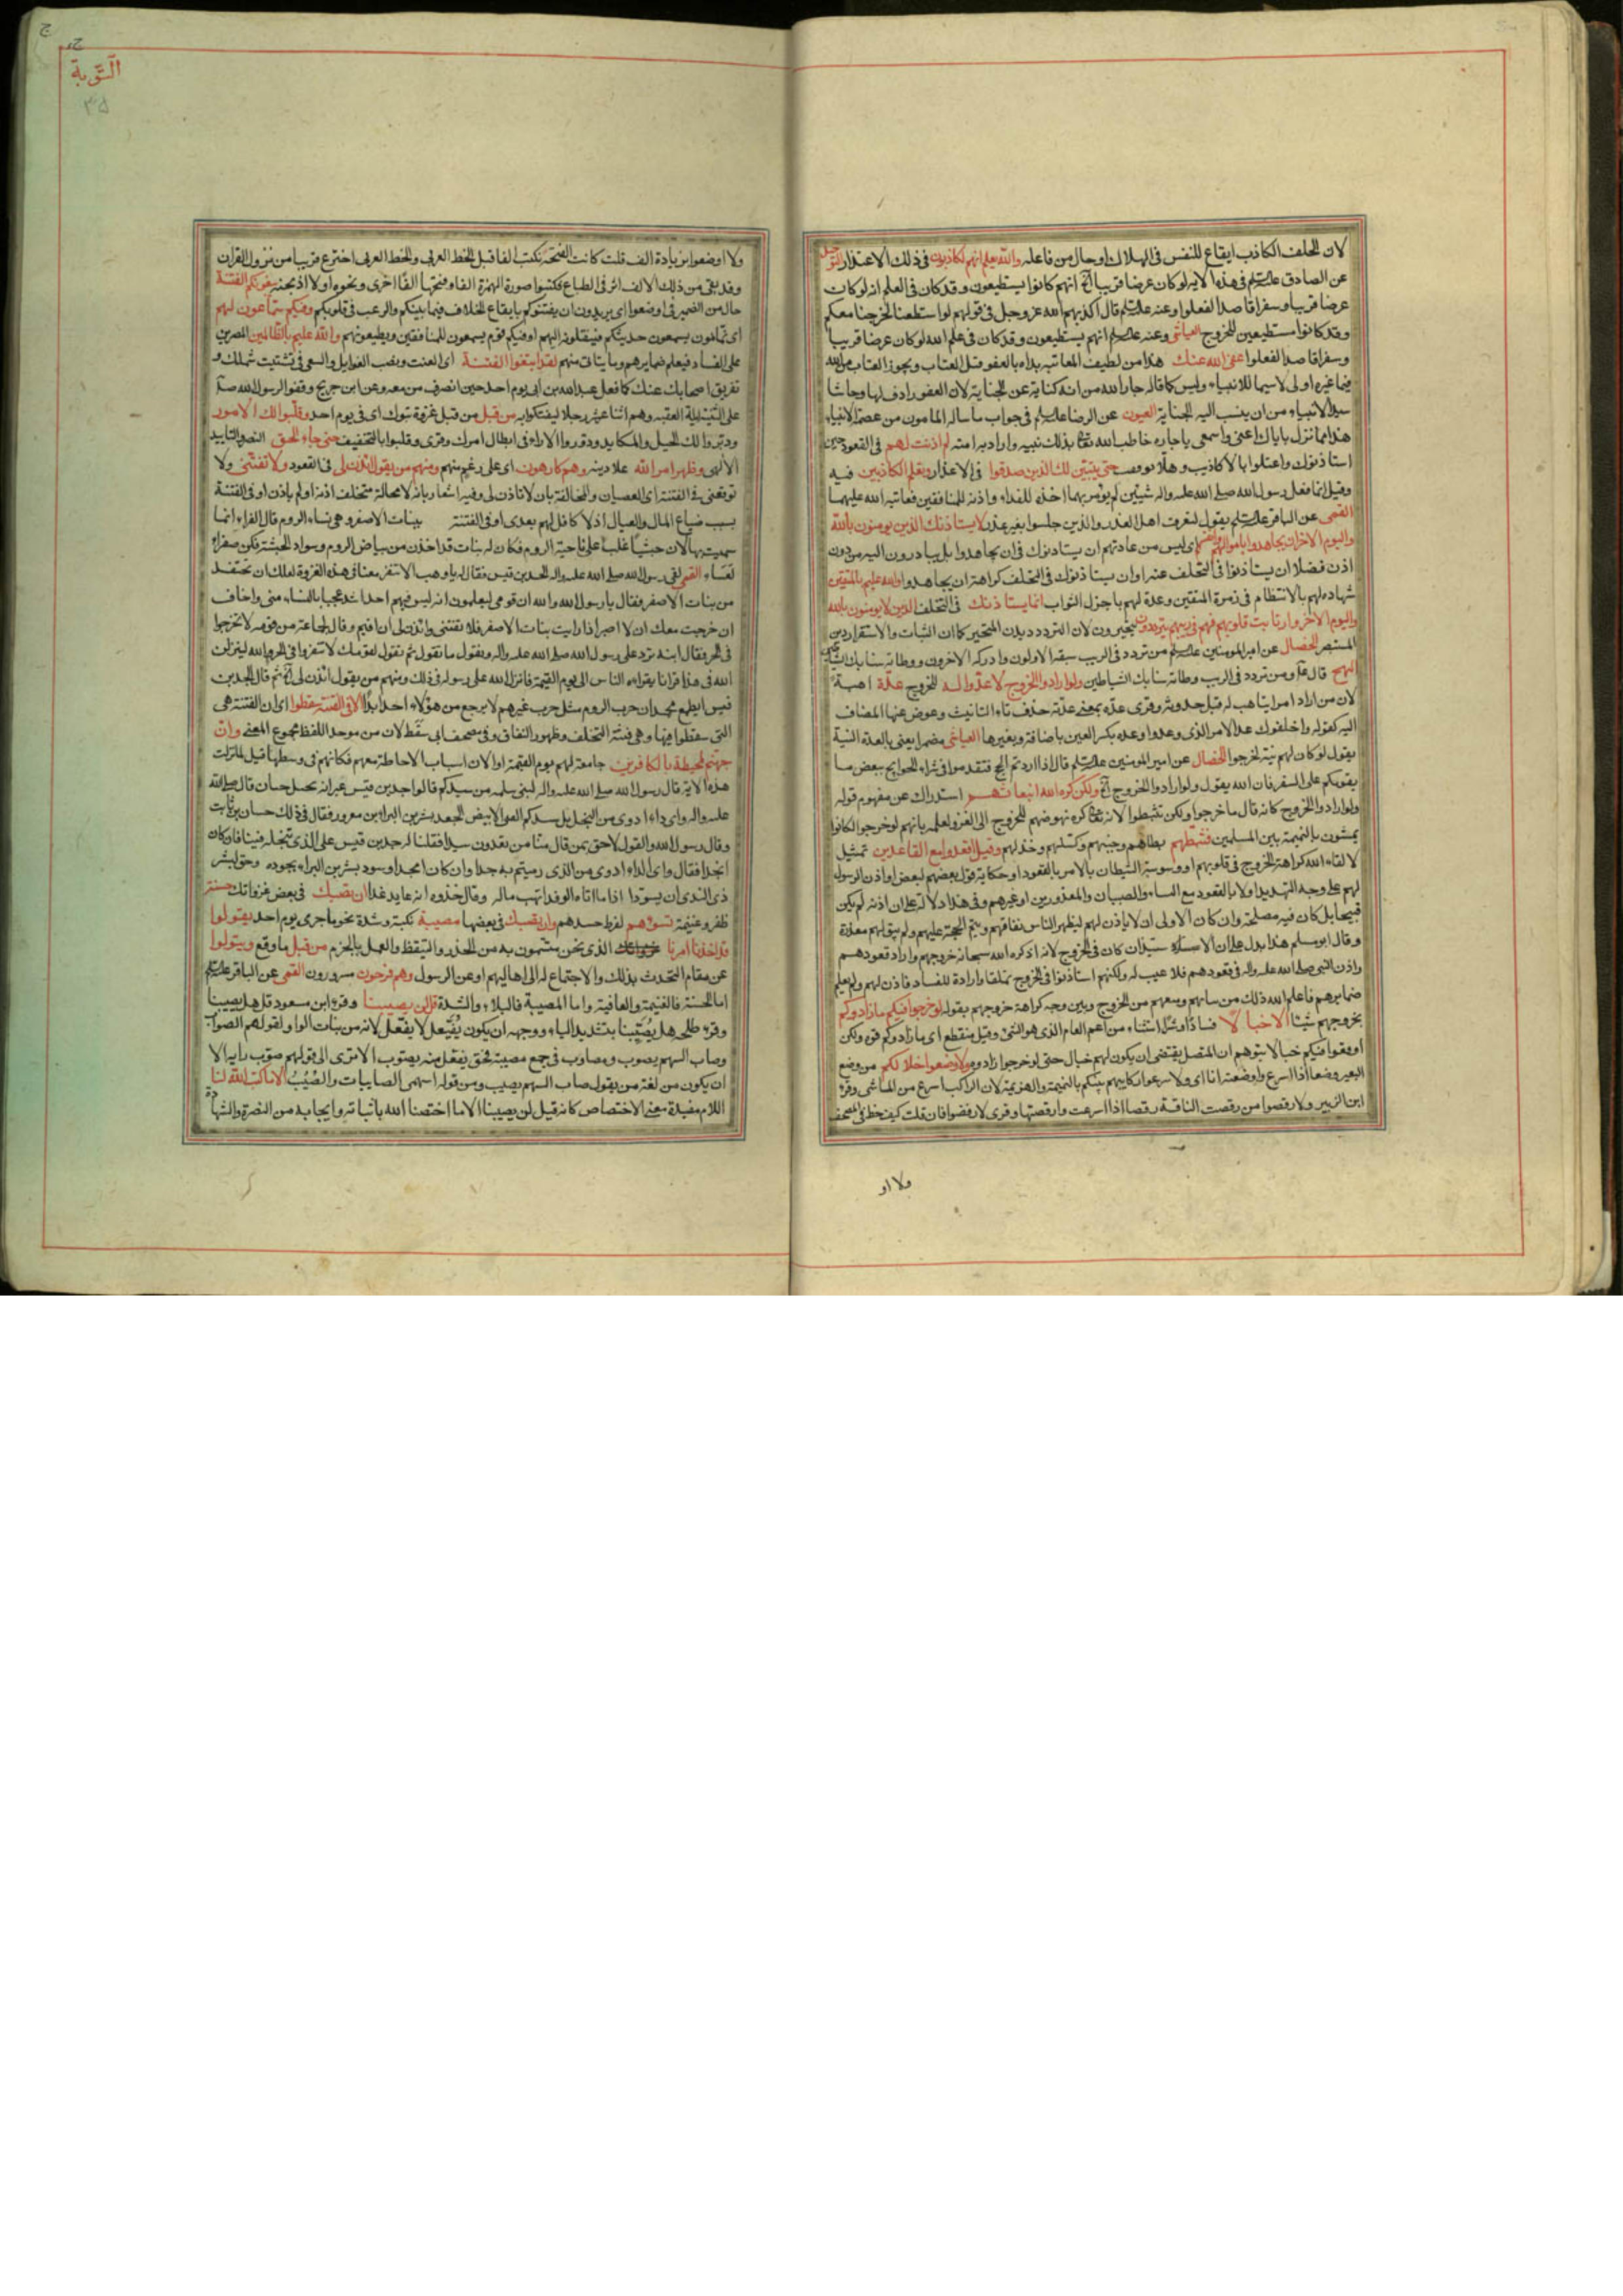 لان الحلف الكاذب ايقاع للنفس فى الهلاك او حال من فاعله والله يعلم انهم لكاذبون فى ذلك الاعتذار التوحيد
عن الصادق عليه السلم فى هذا الاية لو كان عرضا قريبا الخ انهم كانوا يستطيعون وقد كان فى العلم انه لو كان
عرضا قريبا وسفرا قاصدا لفعلوا وعنه عليه السلم قال اكذبهم الله عز وجل فى قولهم لو استطعنا لخرجنا معكم
وقد كانوا مستطيعين للخروج العياشى وعنه عليه السلم انهم يستطيعون وقد كان فى علم الله لو كان عرضا قريبا
وسفرا قاصدا لفعلوا عفى الله عنك هذا من لطيف المعاتبه بداه بالعفو قبل العتاب ويجوز العتاب من الله
فيما غيره اولى لا سيما للانبياء وليس كما قاله جار الله من انه كناية عن الجناية لان العفو رادف لها وحاشا
سيد الانبياء من ان ينسب اليه الجناية العيون عن الرضا عليه السلم فى جواب ما ساله المامون من عصمة الانبياء
هذا مما نزل باياك اعنى واسمعى يا جاره خاطب الله تعالى بذلك نبيه واراد به امته لم اذنت لهم فى القعود حين
استاذنوك واعتلوا بالاكاذيب وهلا توقفت حتى يتبين لك الذين صدقوا فى الاعذار وتعلم الكاذبين فيه
وقيل انما فعل رسول الله صلى الله عليه واله شيئين لم يؤمر بهما اخذه للفداء واذنه للمنافقين فعاتبه الله عليهما
القمى عن الباقر عليه السلم يقول لتعرف اهل العذر والذين جلسوا بغير عذر لا يستاذنك الذين يومنون بالله
واليوم الاخر ان يجاهدوا باموالهم وانفسهم اى ليس من عادتهم ان يستاذنوك فى ان يجاهدوا بل يبادرون اليه من دون
اذن فضلا ان يستاذنوا فى التخلف عنه او ان يستاذنوك فى التخلف كراهة ان يجاهدوا والله عليم بالمتقين
شهاده لهم بالانتظام فى زمرة المتقين وعدة لهم باجزل الثواب انما يستاذنك فى التخلف الذين لا يومنون بالله
واليوم الاخر وارتابت قلوبهم فهم فى ريبهم يترددون يتحيرون لان التردد ديدن المتحير كما ان الثبات والاستقرار ديدن
المستبصر الخصال عن امير المومنين عليه السلم من تردد فى الريب سبقه الاولون وادركه الاخرون ووطاته سنابك الشياطين
النهج قال عليه ومن تردد فى الريب وطاته سنابك الشياطين ولو ارادوا الخروج لاعدوا له للخروج عدة اهبة
لان من اراد امرا يتاهب له قبل حدوثه وقرى عده بمعنى عدته حذف تاء التانيث وعوض عنها المضاف
اليه كقوله واخلفوك عد الامر الذى وعدوا وعده بكسر العين باضافة وبغيرها العياشى مضمرا يعنى بالعدة النية
يقول لو كان لهم نية لخرجوا الخصال عن امير المومنين عليه السلم قال اذا اردتم الحج فتقدموا فى شراء الحوايج ببعض ما
يقويكم على السفر فان الله يقول ولو ارادوا الخروج الخ ولكن كره الله انبعاثهم استدراك عن مفهوم قوله
ولو ارادوا الخروج كانه قال ما خرجوا ولكن تثبطوا لانه تعالى كره نهوضهم للخروج الى الغزو لعلمه بانهم لو خرجوا لكانوا
يمشون بالنميمة بين المسلمين فثبطهم بطاهم وجبنهم وكسلهم وخذلهم وقيل اقعدوا مع القاعدين تمثيل
لالقاء الله كراهة الخروج فى قلوبهم او وسوسة الشيطان بالامر بالقعود او حكاية قول بعضهم لبعض او اذن الرسول
لهم على وجه التهديد اولا بالقعود مع النساء والصبيان والمعذورين او غيرهم وفى هذا دلالة على ان اذنه لم يكن
قبيحا بل كان فيه مصلحة وان كان الاولى ان لا ياذن لهم ليظهر للناس نفاقهم ويتم الحجة عليهم ولم يبق لهم معذرة
وقال ابو مسلم هذا يدل على ان الاستاذان كان فى الخروج لانه اذ كره الله سبحانه خروجهم واراد قعودهم
واذن النبى صلى الله عليه واله فى قعودهم فلا عيب له ولكنهم استاذنوا فى الخروج تملقا وارادة للفساد فاذن لهم ولم يعلم
ضمايرهم فاعلم الله ذلك من ساتهم ومنعهم من الخروج وبين وجه كراهة خروجهم بقوله لو خرجوا فيكم ما زادوكم
بخروجهم شيئا الا خبالا فسادا وشرا استثناء من اعم العام الذى هو الشئ وقيل منقطع اى ما زادوكم قوة ولكن
اوقعوا فيكم خبالا بتوهم ان المتصل يقتضى ان يكون لهم خبال حتى لو خرجوا زادوه ولاوضعوا خلالكم من وضع
البعير وضعا اذا اسرع واوضعته انا اى ولاسرعوا ركايبهم بينكم بالنميمة والهزيمة لان الراكب اسرع من الماشى وقرء
ابن الزبير ولارقصوا من رقصت الناقة رقصا اذا اسرعت وارقصتها وقرى لارفضوا فان قلت كيف خط فى المصحف
ولا او
التوبة
۳۵
ولا اوضعوا بزيادة الف قلت كانت الفتحة تكتب الفا قبل الخط العربى والخط العربى اخترع قريبا من نزول القران
وقد بقى من ذلك الالف اثر فى الطباع فكتبوا صورة الهمزة الفا وفتحتها الفا اخرى ونحوه او لا اذبحنه يبغونكم الفتنة
حال من الضمير فى اوضعوا اى يريدون ان يفتنوكم بايقاع الخلاف فيما بينكم والرعب فى قلوبكم وفيكم سماعون لهم
اى نمامون يسمعون حديثكم فينقلونه اليهم او فيكم قوم يسمعون للمنافقين ويطيعونهم والله عليم بالظالمين المصرين
على الفساد فيعلم ضمايرهم وما يتاتى منهم لقد ابتغوا الفتنة اى العنت ونصب الغوايل والسعى فى تشتيت شملك و
تفريق اصحابك عنك كما فعل عبد الله بن ابى يوم احد حين انصرف من معه وعن ابن جريج وقفوا لرسول الله صلى
على الثنية ليلة العقبه وهم اثنا عشر رجلا ليفتكوا به من قبل من قبل غزوة تبوك اى فى يوم احد وقلبوا لك الامور
ودبروا لك الحيل والمكايد ودوروا الاراء فى ابطال امرك وقرى وقلبوا بالتخفيف حتى جاء الحق النصر والتاييد
الالهى وظهر امر الله علا دينه وهم كارهون اى على رغم منهم ومنهم من يقول ائذن لى فى القعود ولا تفتنى ولا
توقعنى فى الفتنة اى العصيان والمخالفة بان لا تاذن لى وفيه اشعار بانه لا محالة متخلف اذنه او لم ياذن او فى الفتنة
بسبب ضياع المال والعيال اذ لا كافل لهم بعدى او فى الفتنة بينات الاصفر وهى نساء الروم قال الفراء انما
سميت بها لان حبشيا غلب على ناحية الروم فكان له بنات قد اخذن من بياض الروم وسواد الحبشة فكن صفرا
لعساء القمى لقى رسول الله صلى الله عليه واله الجد بن قيس فقال له يا وهب الا تنفر معنا فى هذه الغزوة لعلك ان تحتفد
من بنات الاصفر فقال يا رسول الله والله ان قومى ليعلمون انه ليس فيهم احد اشد عجبا بالنساء منى واخاف
ان خرجت معك ان لا اصبر اذا رايت بنات الاصفر فلا تفتنى وائذن لى ان اقيم وقال لجماعة من قومه لا تخرجوا
فى الحر فقال ابنه ترد على رسول الله صلى الله عليه واله وتقول ما تقول ثم تقول لقومك لا تنفروا فى الحر والله لينزلن
الله فى هذا قرانا يقراءه الناس الى يوم القيمة فانزل الله على رسوله فى ذلك ومنهم من يقول ائذن لى الخ ثم قال الجد بن
قيس ايطمع محمد ان حرب الروم مثل حرب غيرهم لا يرجع من هؤلاء احد ابدا الا فى الفتنة سقطوا اى ان الفتنة هى
التى سقطوا فيها وهى فتنة التخلف وظهور النفاق وفى مصحف ابى سقط لان من موحد اللفظ مجموع المعنى وان
جهنم لمحيطة بالكافرين جامعة لهم يوم القيمة او الان اسباب الاحاطة معهم فكانهم فى وسطها قيل لما نزلت
هذه الاية قال رسول الله صلى الله عليه واله لبنى سلمه من سيدكم قالوا جد بن قيس غير انه بخيل جبان قال صلى الله
عليه واله واى داء ادوى من البخل بل سيدكم الفتى الابيض الجعد بشر بن البراء بن معرور فقال فى ذلك حسان بن ثابت
وقال رسول الله والقول لاحق بمن قال منا من تعدون سيدا فقلنا له جد بن قيس على الذى نبخله فينا فان كان
انجدا فقال واى الداء ادوى من الذى رميتم به جدا وان كان امجدا وسود بشر بن البراء بجوده وحق لبشر
ذى الندى ان يسودا اذا ما اتاه الوفد انهب ماله وقال خذوه انه عايد غدا ان تصبك فى بعض غزواتك حسنة
ظفر وغنيمة تسؤهم لفرط حسدهم وان تصبك فى بعضها مصيبة نكبة وشدة نحو ما جرى يوم احد يقولوا
قد اخذنا امرنا الذى نحن متسمون به من الحذر والتيقظ والعمل بالحزم من قبل ما وقع ويتولوا
عن مقام التحدث بذلك والاجتماع له الى اهاليهم او عن الرسول وهم فرحون مسرورون القمى عن الباقر عليه السلم
اما الحسنة فالغنيمة والعافية واما المصيبة فالبلاء والشدة قل لن يصيبنا وقرء ابن مسعود قل هل يصيبنا
وقرء طلحه هل يصيبنا بتشديد الياء ووجهه ان يكون يفيعل لا يفعل لانه من بنات الواو لقولهم الصواب
وصاب السهم يصوب ومصاوب فى جمع مصيبة فحق يفعل منه يصوب الا ترى الى قولهم صوب رايه الا
ان يكون من لغة من يقول صاب السهم يصيب ومن قوله اسهمى الصايبات والصيب الا ما كتب الله لنا
اللام مفيدة معنى الاختصاص كانه قيل لن يصيبنا الا ما اختصنا الله باثباته وايجابه من النصرة والشهادة